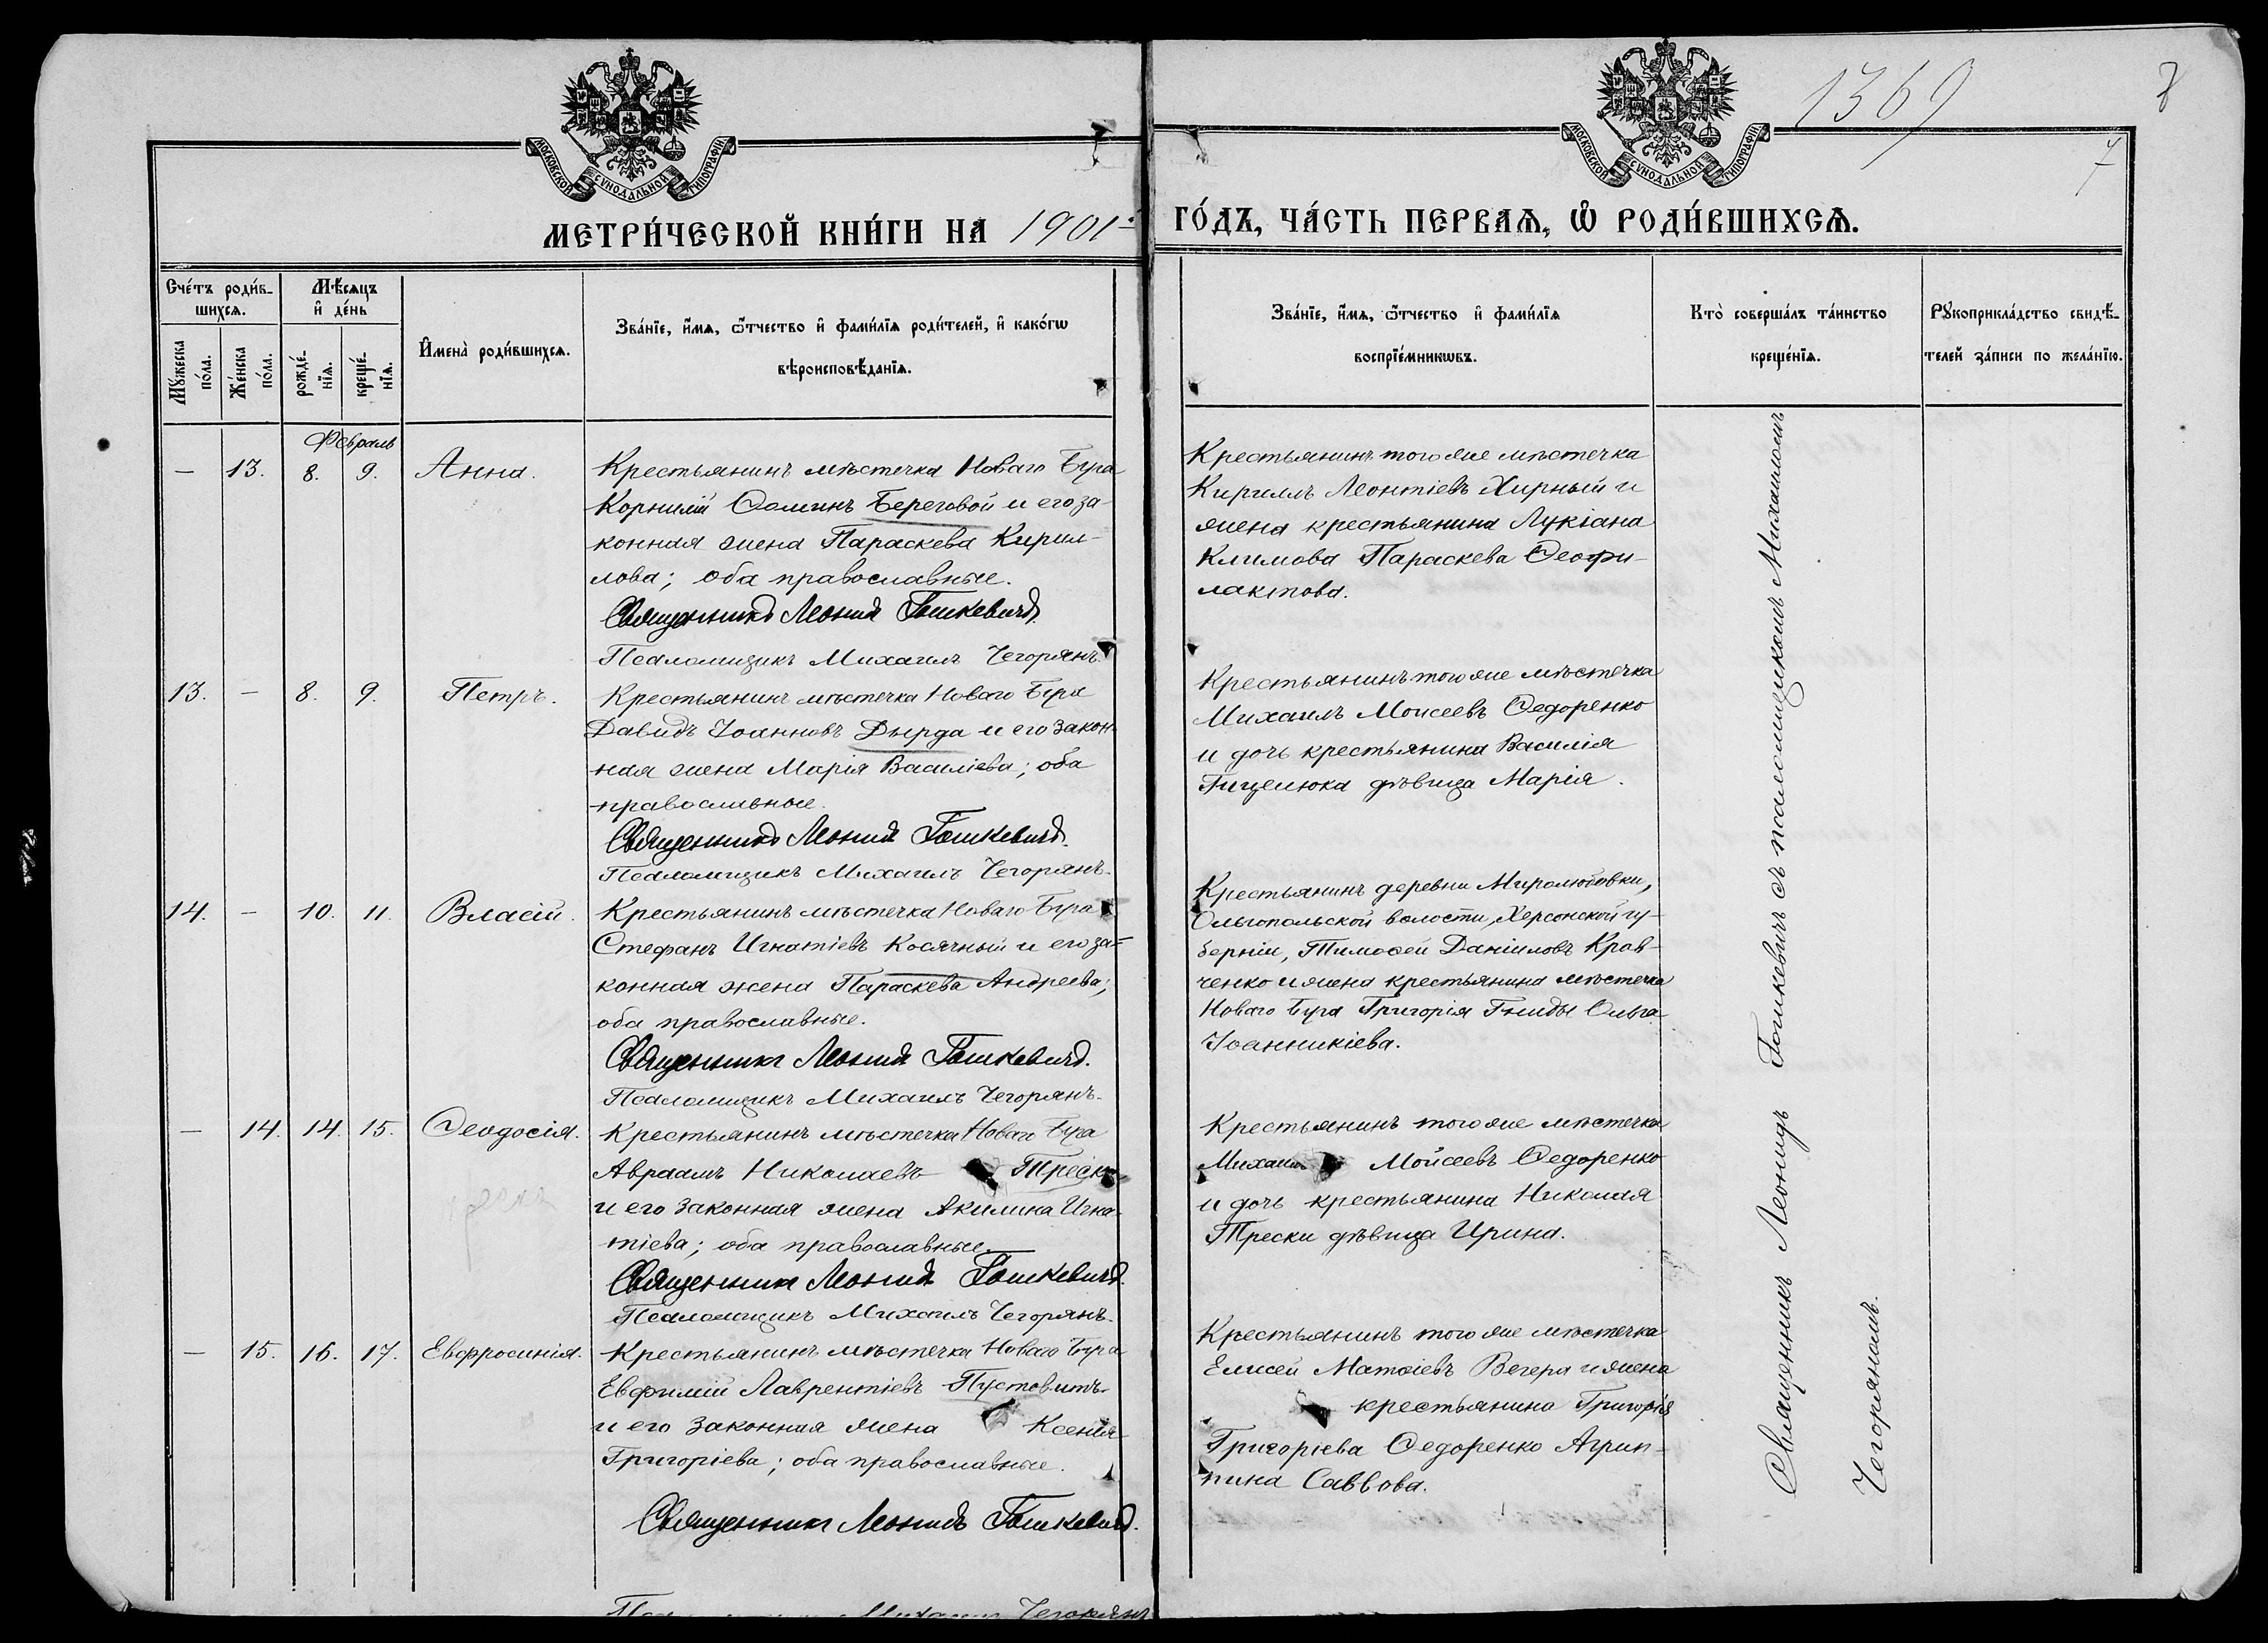 1369
7
МОСКОВСКОЙ СѴНОДАЛЬНОЙ ТИПОГРАФІИ
МОСКОВСКОЙ СѴНОДАЛЬНОЙ ТИПОГРАФІИ
МЕТРИ́ЧЕСКОЙ КНИ́ГИ НА 1901 ГО́ДЪ, ЧА́СТЬ ПЕРВАѦ, Ѡ҆ РОДИ́ВШИХСѦ.
Сче́тъ роди́в-
шихсѧ.
Мѣ́сѧцъ
и҆ де́нь
Мꙋ́жеска
по́ла.
Же́нска
по́ла.
рожде́-
нїѧ.
креще́-
нїѧ.
И҆мена̀ роди́вшихсѧ.
Зва́нїе, и҆́мѧ, ѻ҆́тчество и҆ фами́лїѧ роди́телей, и҆ како́гѡ
вѣроисповѣ́данїѧ.
Зва́нїе, и҆́мѧ, ѻ҆́тчество и҆ фами́лїѧ
воспрїе́мникѡвъ.
Кто̀ соверша́лъ та́инство
креще́нїѧ.
Рꙋкоприкла́дство свидѣ́-
телей за́писи по жела́нїю.
Февраль
— 13. 8. 9. Анна.
Крестьянинъ мѣстечка Новаго Буга
Корнилій Ѳоминъ Береговой и его за-
конная жена Параскева Кирил-
лова; оба православные.
Священникъ Леонид Гошкевичъ.
Псаломщикъ Михаилъ Чегорянъ.
Крестьянинъ того же мѣстечка
Кириллъ Леонтіевъ Жирный и
жена крестьянина Лукіана
Климова Параскева Ѳеофи-
лактова.
13. — 8. 9. Петръ.
Крестьянинъ мѣстечка Новаго Буга
Давидъ Іоанновъ Дырда и его закон-
ная жена Марія Василіева; оба
православные.
Священникъ Леонид Гошкевичъ.
Псаломщикъ Михаилъ Чегорянъ.
Крестьянинъ того же мѣстечка
Михаилъ Моисеевъ Ѳедоренко
и дочь крестьянина Василія
Гицелюка дѣвица Марія.
14. — 10. 11. Власій.
Крестьянинъ мѣстечка Новаго Буга
Стефанъ Игнатіевъ Косячный и его за-
конная жена Параскева Андреева;
оба православные.
Священникъ Леонид Гошкевичъ.
Псаломщикъ Михаилъ Чегорянъ.
Крестьянинъ деревни Миролюбовки,
Ольгопольской волости, Херсонской гу-
берніи, Тимоѳей Даніиловъ Крав-
ченко и жена крестьянина мѣстечка
Новаго Буга Григорія Гниды Ольга
Іоанникіева.
— 14. 14. 15. Ѳеодосія.
Крестьянинъ мѣстечка Новаго Буга
Авраамъ Николаевъ Треска
и его законная жена Акилина Игна-
тіева; оба православные.
Священникъ Леонид Гошкевичъ.
Псаломщикъ Михаилъ Чегорянъ.
Крестьянинъ того же мѣстечка
Михаилъ Мойсеевъ Ѳедоренко
и дочь крестьянина Николая
Трески дѣвица Ирина.
— 15. 16. 17. Евфросинія.
Крестьянинъ мѣстечка Новаго Буга
Евфимій Лаврентіевъ Пустовитъ
и его законная жена Ксенія
Григоріева; оба православные.
Священникъ Леонидъ Гошкевичъ.
Михаилъ Чегорянъ
Крестьянинъ того же мѣстечка
Елисей Матѳіевъ Вечера и жена
крестьянина Григорія
Григоріева Ѳедоренко Агрип-
пина Саввова.
Священникъ Леонидъ Гошкевичъ съ псаломщикомъ Михаиломъ
Чегоряномъ.